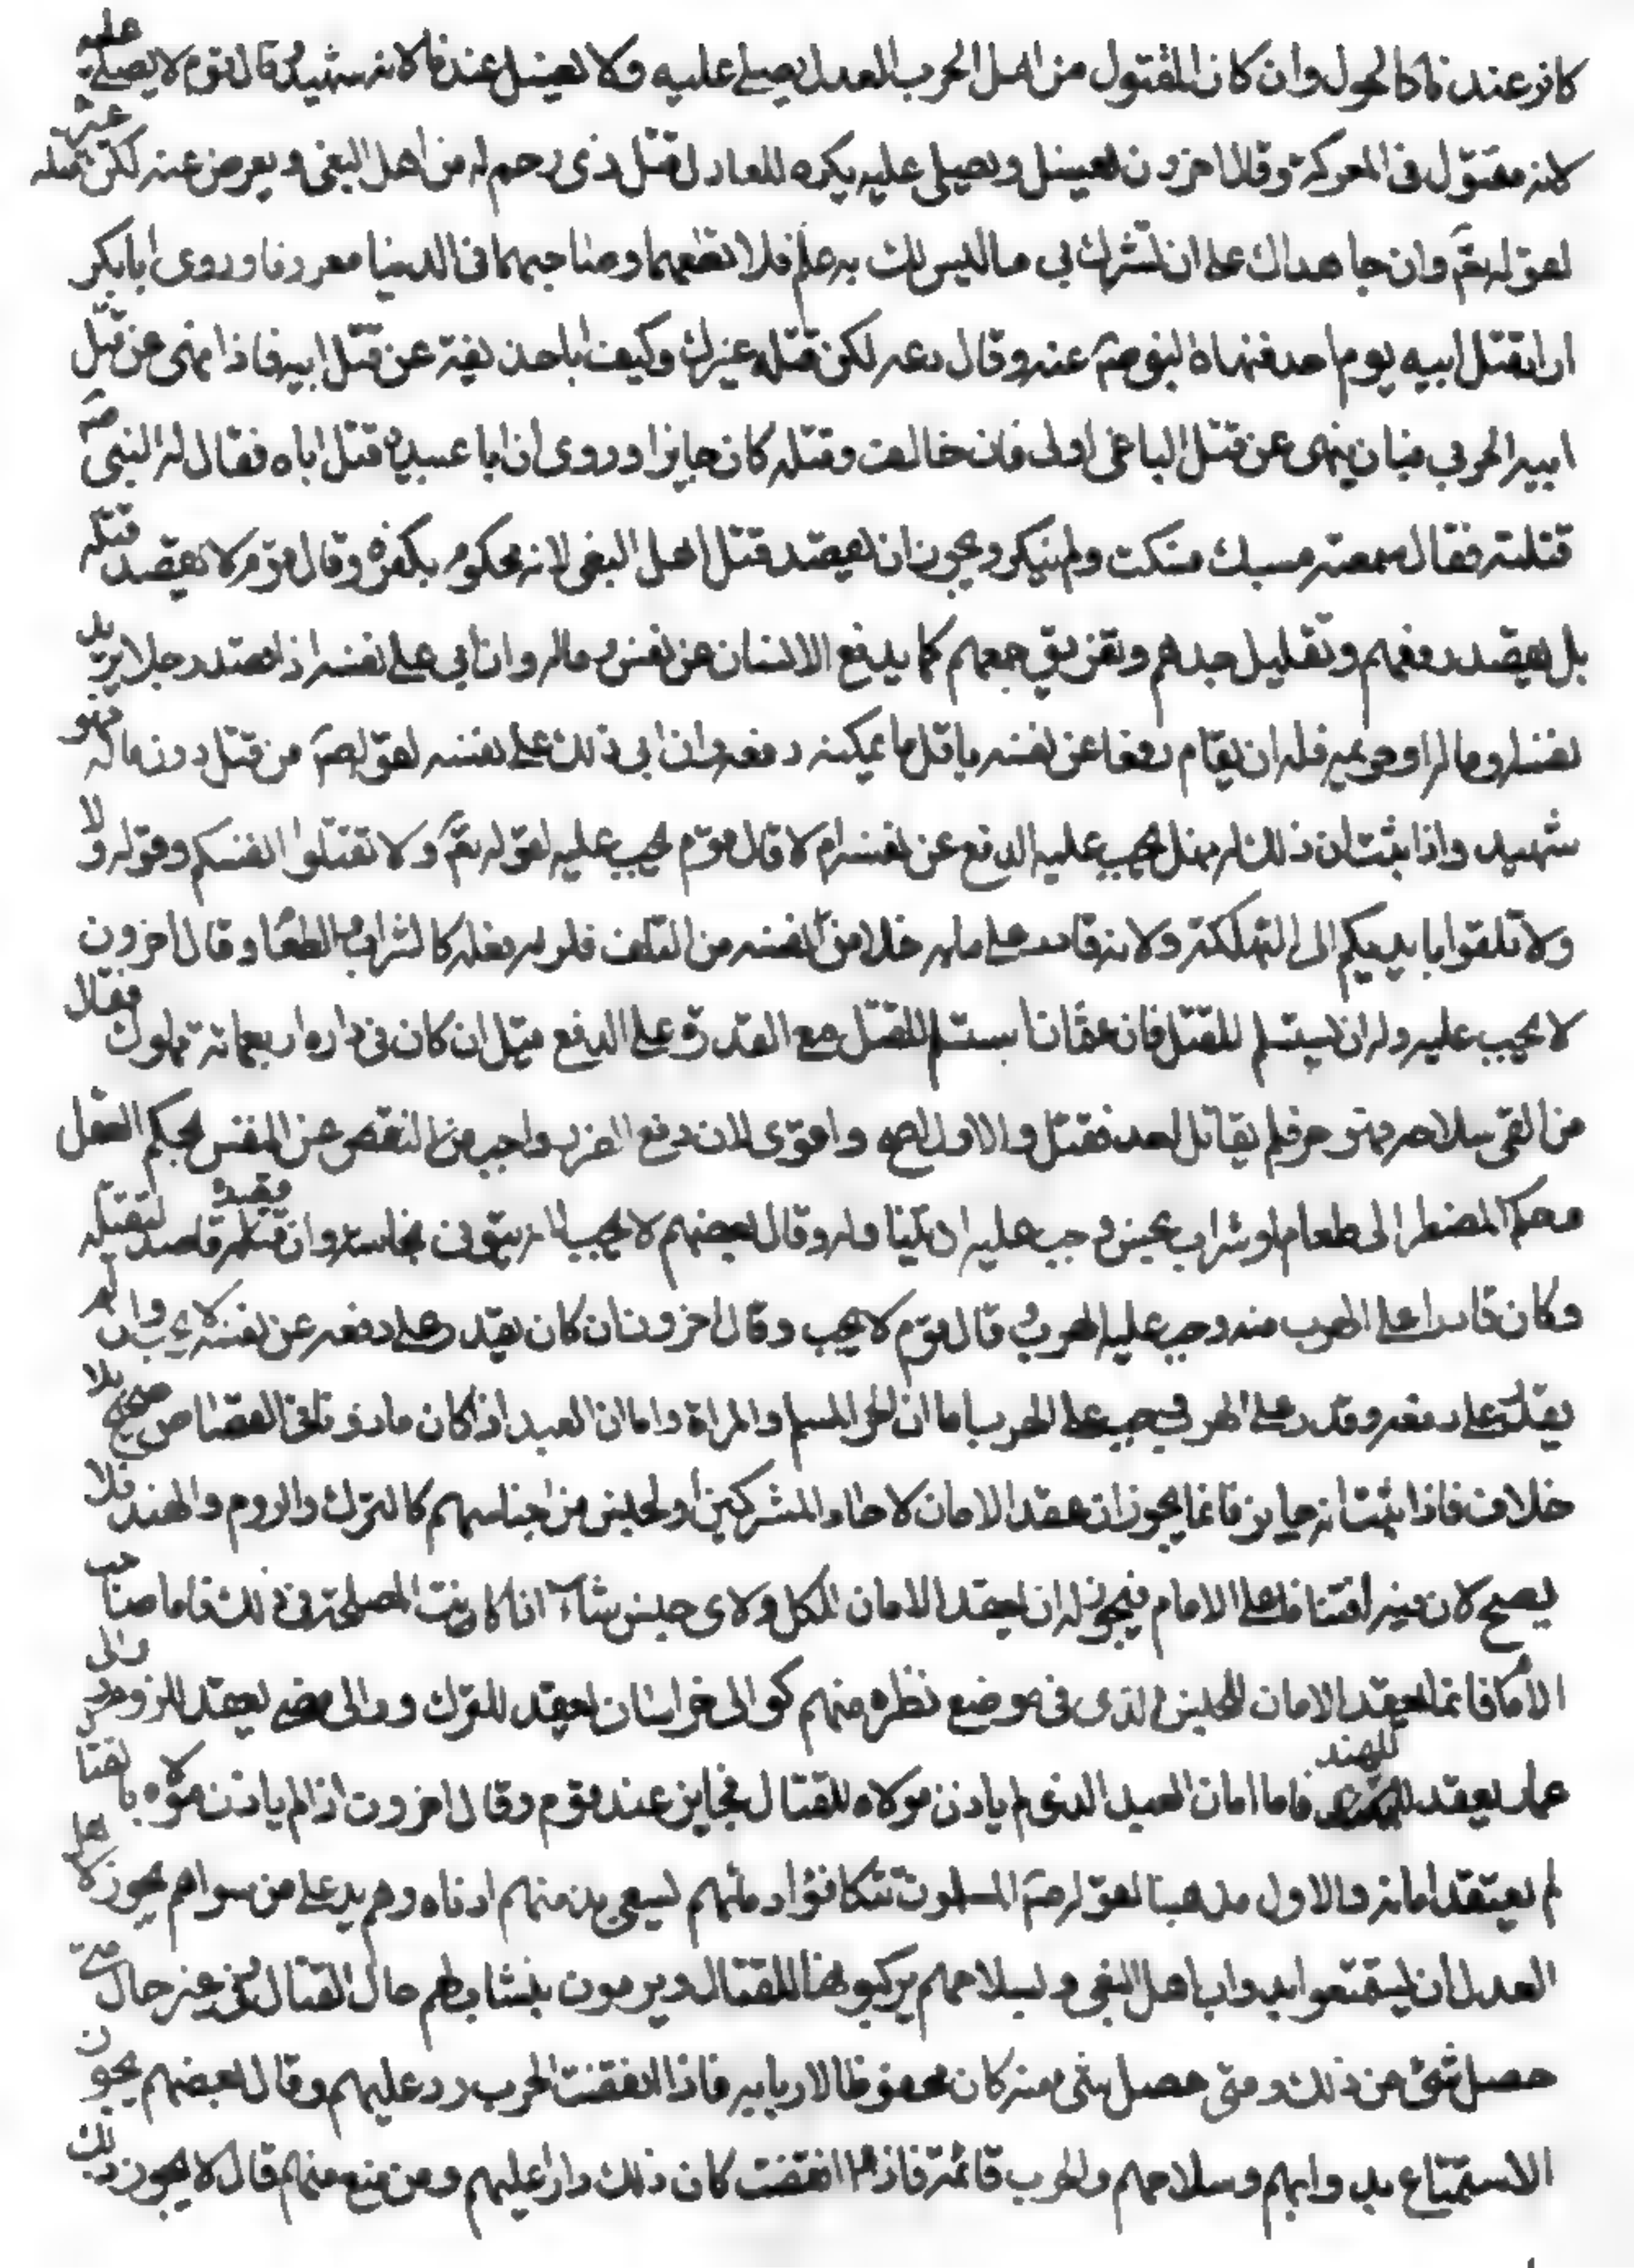 كافر عندنا كالحول وان كان المقتول من اهل الحرب العدل يصلى عليه ولا يغسل عندنا لانه شهيد وقال قوم لا يصلى عليه
لانه مقتول فى المعركة وقال اخرون يغسل ويصلى عليه يكره للعادل قتل ذى رحم له من اهل البغى ويعرض عنه لكن يقتله غيره
لقوله تعَ وان جاهداك على ان تشرك بى ما ليس لك به علم فلا تطعهما وصاحبهما فى الدنيا معروفا وروى ابا بكر
اراد قتل ابيه يوم احد فنهاه النبى صَ عنه وقال دعه لكن قتله غيرك وكيف ابا حذيفة عن قتل ابيه فاذا نهى عن قتل
ابيه الحربى فبان ينهى عن قتل الباغى اولى فان خالف وقتله كان جايزا وروى ان ابا عبيدة قتل اباه فقال له النبى صَ
قتلته فقال سمعته يسبك فسكت ولم ينكر ويجوز ان يقصد قتل اهل البغى لانه محكوم بكفره وقال قوم لا يقصد قتله
بل يقصد دفعهم وتقليل حدهم وتفريق جمعهم كما يدفع الانسان عن نفس وماله وان ابى على نفسه اذا قصد رجلا يريد
نفسه او ماله او حريمه فله ان يقام دفعا عن نفسه باقل ما يمكنه دفعه وان ابى ذلك على نفسه لقوله صَ من قتل دون ماله فهو
شهيد واذا ثبت ان ذلك له فهل يجب عليه الدفع عن نفسه ام لا قال قوم يجب عليه لقوله تعَ ولا تقتلوا انفسكم وقوله ولا
ولا تلقوا بايديكم الى التهلكة ولانه قادر على ما به خلاص نفسه من التلف فلزمه فعله كالشراب والطعام وقال اخرون
لا يجب عليه وله ان يستسلم للقتل فان عثمان استسلم للقتل مع القدرة على الدفع قيل ان كان فى داره اربعمائة مملوك فقال
من القى سلاحه فهو حر فلم يقاتل احد فقتل والاول اصح واقوى لان دفع الضرب واجب من النقص عن النفس بحكم العقل
محكم المضطر الى طعام او شراب نجس وجب عليه ان تناوله وقال بعضهم لا يجب لانه يتوقى نجاسته وان قصده قاصد لقتله
وكان قادرا على الهرب منه وجب عليه الهرب وقال قوم لا يجب وقال اخرون ان كان يقدر على دفعه عن نفسه لا يجب وان لم
يقدر على دفعه وقدر على الهرب فيجب على الهرب اما ان الحر المسلم والمراة واما ان العبد اذا كان ماذونا فى القصاص صحيح بلا
خلاف فاذا ثبت انه جايز فانما يجوز ان يعقد الامان لاحاد المشركين او لجنس من اجناسهم كالترك والروم والهند فلا
يصح لان فيه افتياتا على الامام فيجوز له ان يعقد الامان للكل ولاى جنس شاء اذا كانت المصلحة فى ذلك فاما صاحب
الامام فانما يعقد الامان للجنس الذى فى موضع نظره منهم كوالى خراسان يعقد للترك ووالى مصر يعقد للروم ووالى
عمار يعقد للهند فاما امان العبد الذى لم ياذن مولاه للقتال فجايز عند قوم وقال اخرون اذا لم ياذن مولاه بالقتال
لم يعتقد امانه والاول مذهبنا لقوله صَ المسلمون تتكافؤا دمائهم يسعى بذمتهم ادناهم وهم يد على من سواهم يجوز لاهل
العدل ان يستمتعوا بدواب اهل البغى وبسلاحهم يركبونها للقتال ويرمون بنشابهم حال القتال وفى غير حال متى
حصل شئ من ذلك ومتى حصل شئ منه كان محفوظا لاربابه فاذا انقضت الحرب رد عليهم وقال بعضهم يجوز
الاستمتاع بدوابهم وسلاحهم والحرب قائمة فاذا انقضت كان ذلك رد عليهم ومن منع منهم قال لا يجوز ذلك